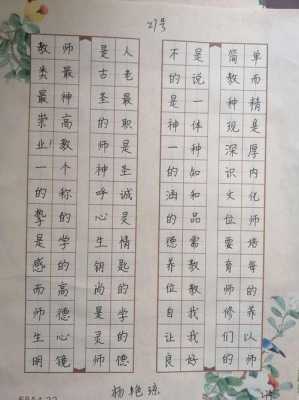 教师是人
类最古老
最神圣最
崇高的职
业！教师是
一个神圣
的称呼诚
挚的心灵
是学生情
感的钥匙
而高尚的
师德是学
生心灵的
明镜师德
不是简单
的说教而
是一种精
神体现是
一种深厚
的知识内
涵和文化
的品位师
德需要培
养教育每
位教师的
自我修养
让我们以
良好的师
杨艳琼